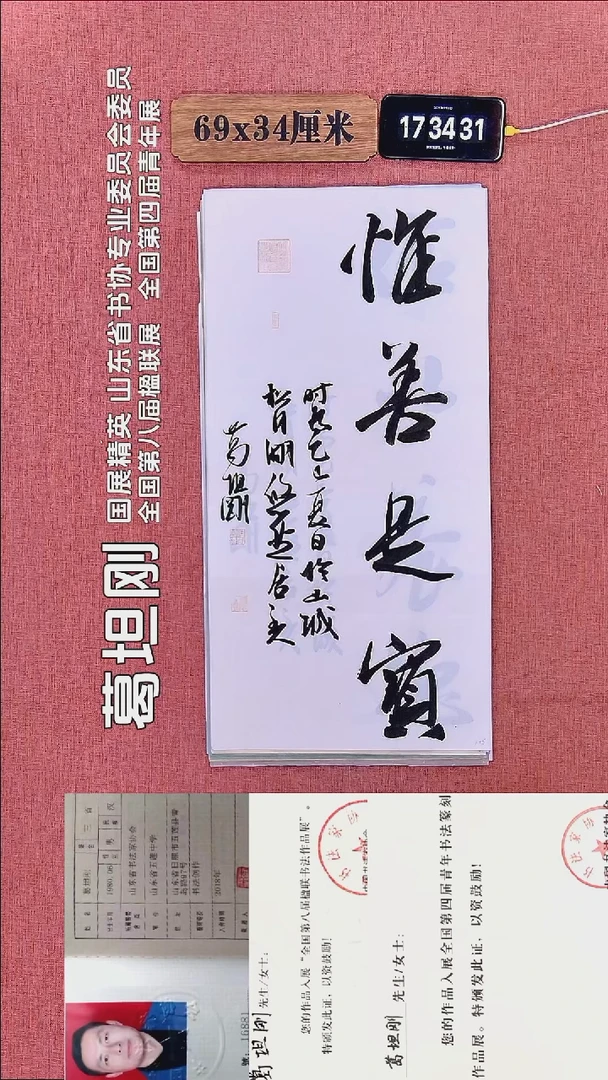 69x34厘米
17 34 31
国展精英 山东省书协专业委员会委员
全国第八届楹联展 全国第四届青年展
葛坦刚
惟善是宝
时在乙巳夏日于山城
松月湖悠然居主
葛坦刚
山东省书法家协会
山东省五莲中学
书法创作
2018年
葛坦刚 先生/女士：
您的作品入展“全国第八届楹联书法作品展”。
特颁发此证，以资鼓励！
葛坦刚 先生/女士：
您的作品入展全国第四届青年书法篆刻
作品展。特颁发此证，以资鼓励！